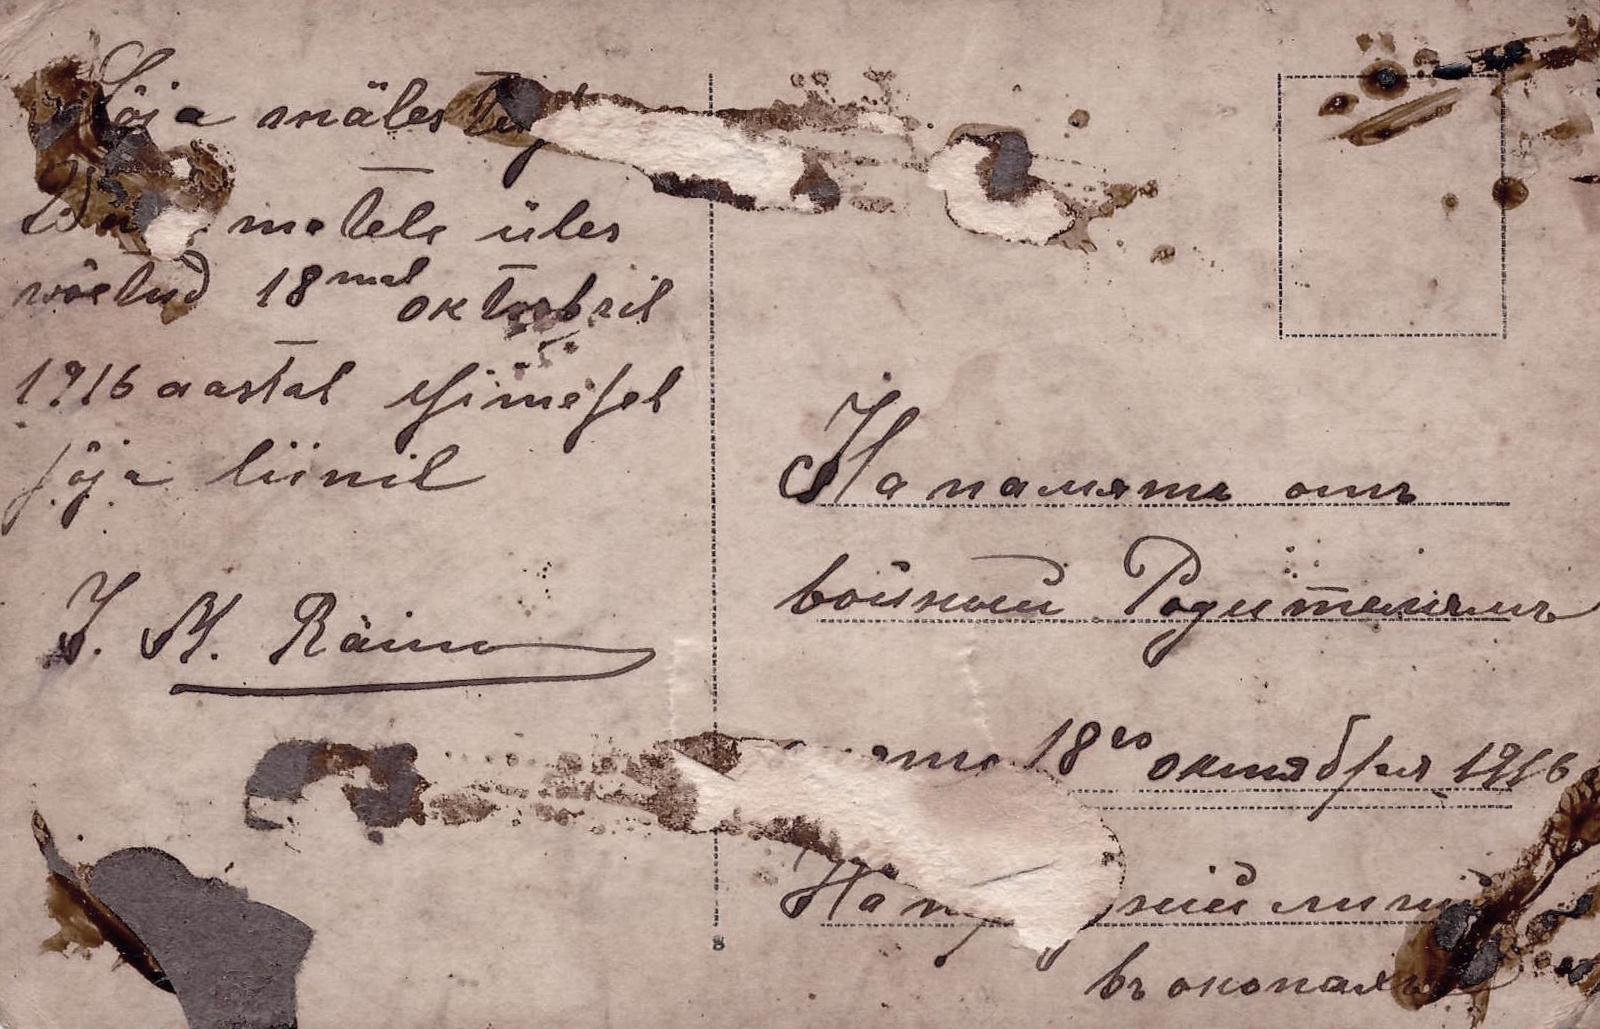 Sõja mäles
matele üles
wõetud 18mal oktoobril
1916 aastal esimesel
sõja liinil
J. M. Räim
На память отъ
войный Родителямъ
18го октября 1916
На ний лині
въ окопахъ
8